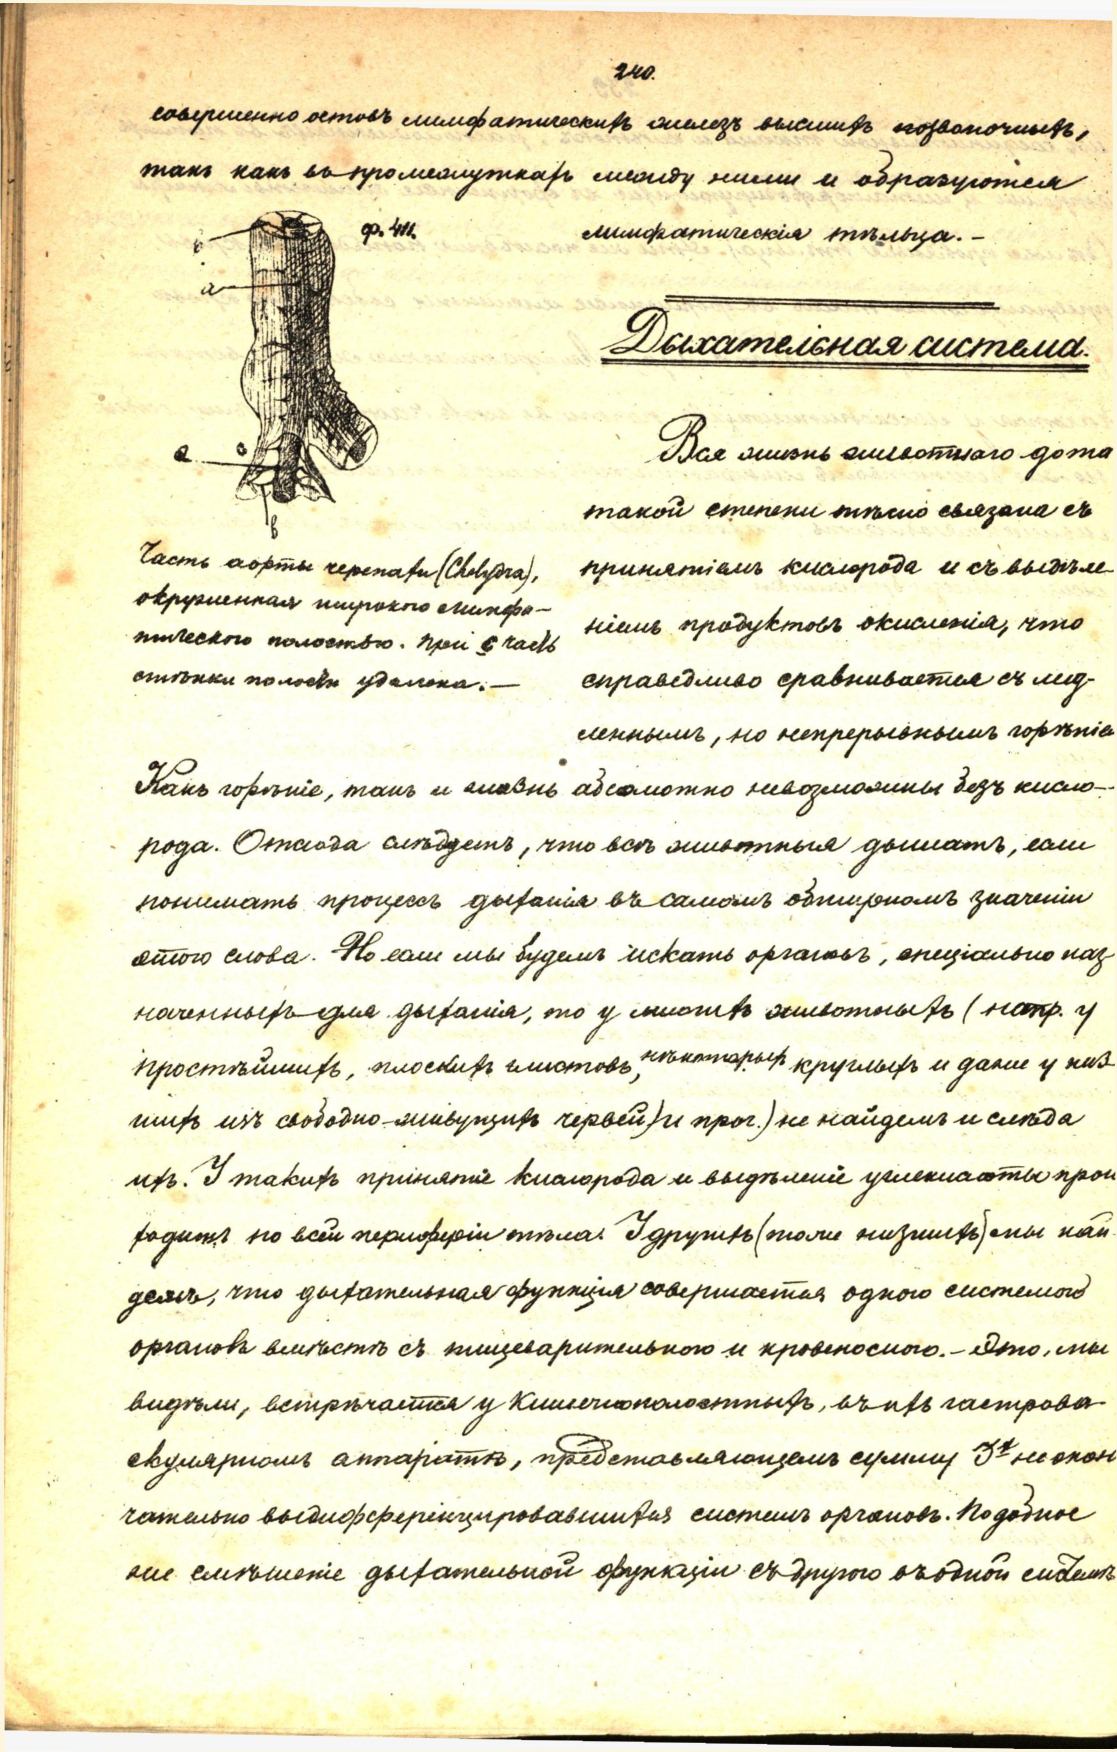 240.
совершенно остовъ лимфатическихъ железъ высшихъ позвоночныхъ,
такъ какъ въ промежуткахъ между ними и образуются
ф. 411.
лимфатическія тѣльца. –
b
a
a
c
b
Часть аорты черепахи (Chelydra),
окруженная широкою лимфа-
тическою полостью. При c часть
стѣнки полости удалена. —
Дыхательная система.
Вся жизнь животнаго до та
такой степени тѣсно связана съ
принятіемъ кислорода и съ выдѣле-
ніемъ продуктовъ окисленія, что
справедливо сравнивается съ мед-
леннымъ, но непрерывнымъ горѣніе
Какъ горѣніе, такъ и жизнь абсолютно невозможны безъ кисло-
рода. Отсюда слѣдуетъ, что всѣ животныя дышатъ, если
понимать процессъ дыханія въ самомъ обширномъ значеніи
этого слова. Но если мы будемъ искать органовъ, спеціально наз
наченныхъ для дыханія, то у многихъ животныхъ (напр. у
простѣйшихъ, плоскихъ глистовъ, нѣкоторыхъ круглыхъ и даже у низ
шихъ изъ свободно-живущихъ червей) и проч.) не найдемъ и слѣда
ихъ. У такихъ принятіе кислорода и выдѣленіе углекислоты прои
ходитъ по всей периферіи тѣла. У другихъ (тоже низшихъ) мы най
демъ, что дыхательная функція совершается одною системою
органовъ вмѣстѣ съ пищеварительною и кровеносною. – Это, мы
видѣли, встрѣчается у Кишечнополостныхъ, въ ихъ гастрова-
скулярномъ аппаратѣ, представляющемъ сумму 3х не окон
чательно выдифференцировавшихся системъ органовъ. Подобное
же смѣшеніе дыхательной функціи съ другою въ одной системѣ